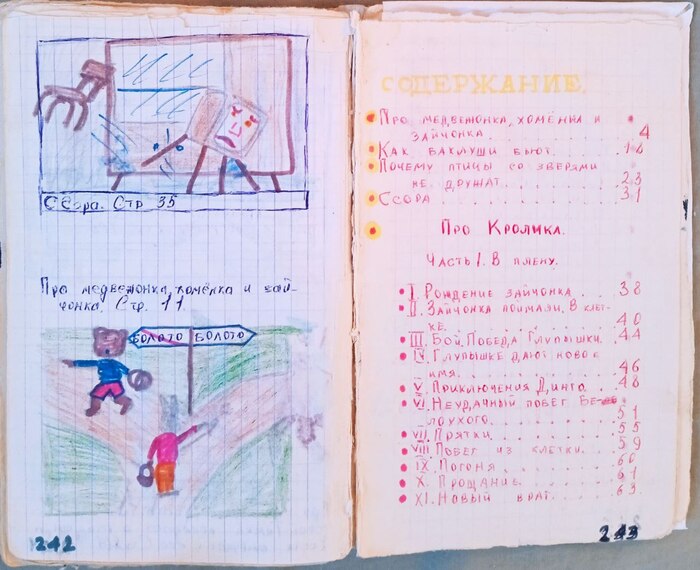 Ссора. Стр 35
Про медвежонка, хомёнка и зай-
чонка. Стр. 11.
БОЛОТО БОЛОТО
242
СОДЕРЖАНИЕ.
Про медвежонка, хомёнка и
зайчонка 4
Как баклуши бьют. 18
Почему птицы со зверями
не дружат. 23
Ссора 31
Про Кролика.
Часть I. В плену.
I. Рождение зайчонка 38
II. Зайчонка поймали. В клет-
ке. 40
III. Бой. Победа Глупышки. 44
IV. Глупышке дают новое
имя. 46
V. Приключения Динго. 48
VI. Неудачный побег Бе-
лоухого. 51
VII. Прятки. 55
VIII. Побег из клетки. 59
IX. Погоня 60
X. Прощание 61
XI. Новый враг. 63
243